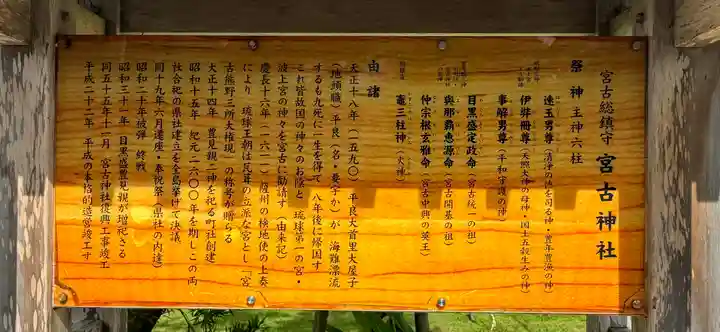 宮古総鎮守 宮古神社
祭神 主神六柱
速玉男尊(清浄の徳を司る神・豊年豊漁の神)
伊弉冊尊(天照大神の母神・国土五穀生みの神)
事解男尊(平和守護の神)
目黒盛定政命(宮古統一の祖)
與那覇恵源命(宮古開基の祖)
仲宗根玄雅命(宮古中興の英王)
竈三柱神(火神)
由緒
天正十八年(一五九〇) 平良大首里大屋子
(地頭職)・平良(名・養宇か)が 海難漂流
するも九死に一生を得て 八年後に帰国す
これ皆故国の神々のお陰と 琉球第一の宮・
波上宮の神々を宮古に勧請す(由来記)
慶長十六年(一六一一) 薩州の検地使の上奏
により 琉球王朝は瓦葺の立派な宮とし「宮
古熊野三所大権現」の称号が贈らる
大正十四年 豊見親二神を祀る町社創建
昭和十五年 紀元二六〇〇年を期しこの両
社合祀の県社建立を全島挙げて決議
同十九年六月遷座・奉祝祭(県社の内達)
昭和二十年被弾 終戦
昭和三十一年 目黒盛豊見親が増祀さる
同五十五年十一月 宮古神社復興工事竣工
平成二十二年 平成の本格的造営竣工す